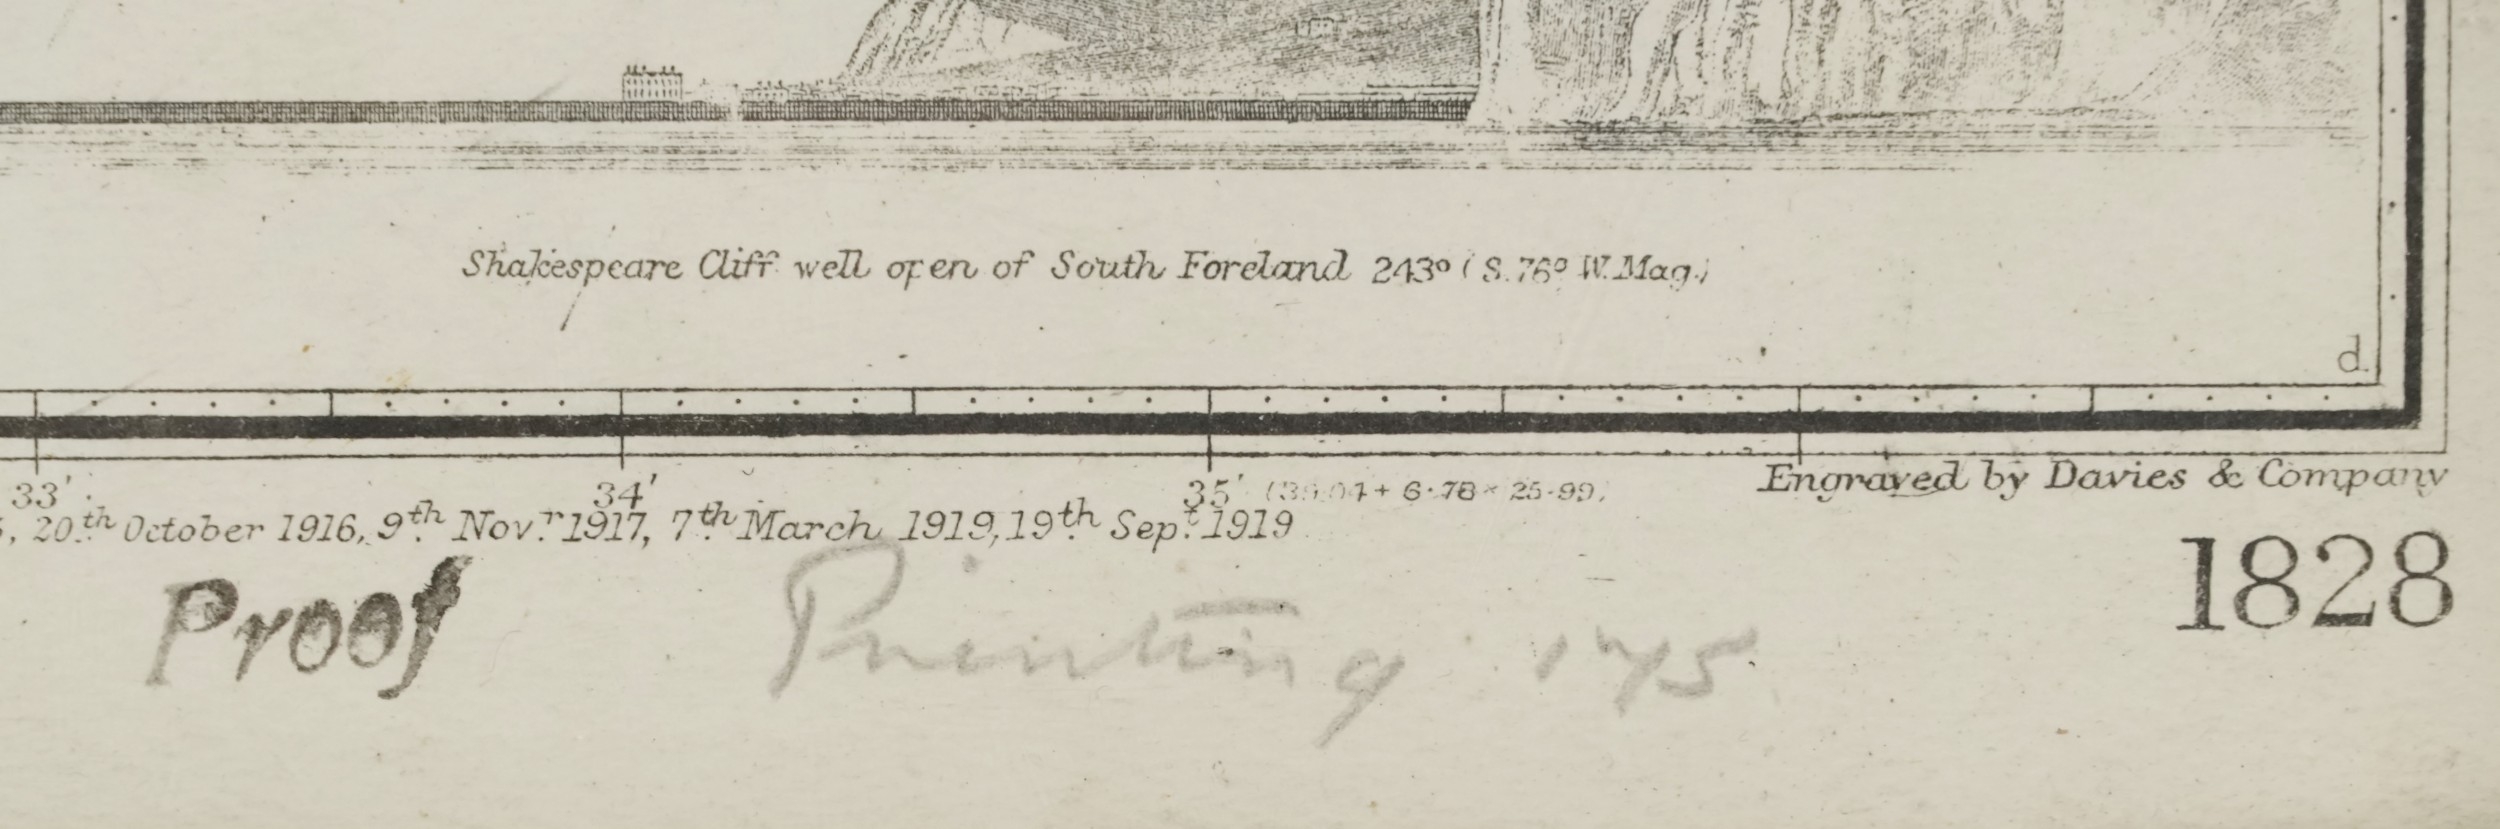 Shakespeare Cliff well open of South Foreland 243° (S.76° W.Mag.)
d.
33' 34' 35' 6·78 × 25·99) Engraved by Davies & Company
20th October 1916, 9th Novr 1917, 7th March 1919, 19th Sept. 1919
1828
Proof Printing 175